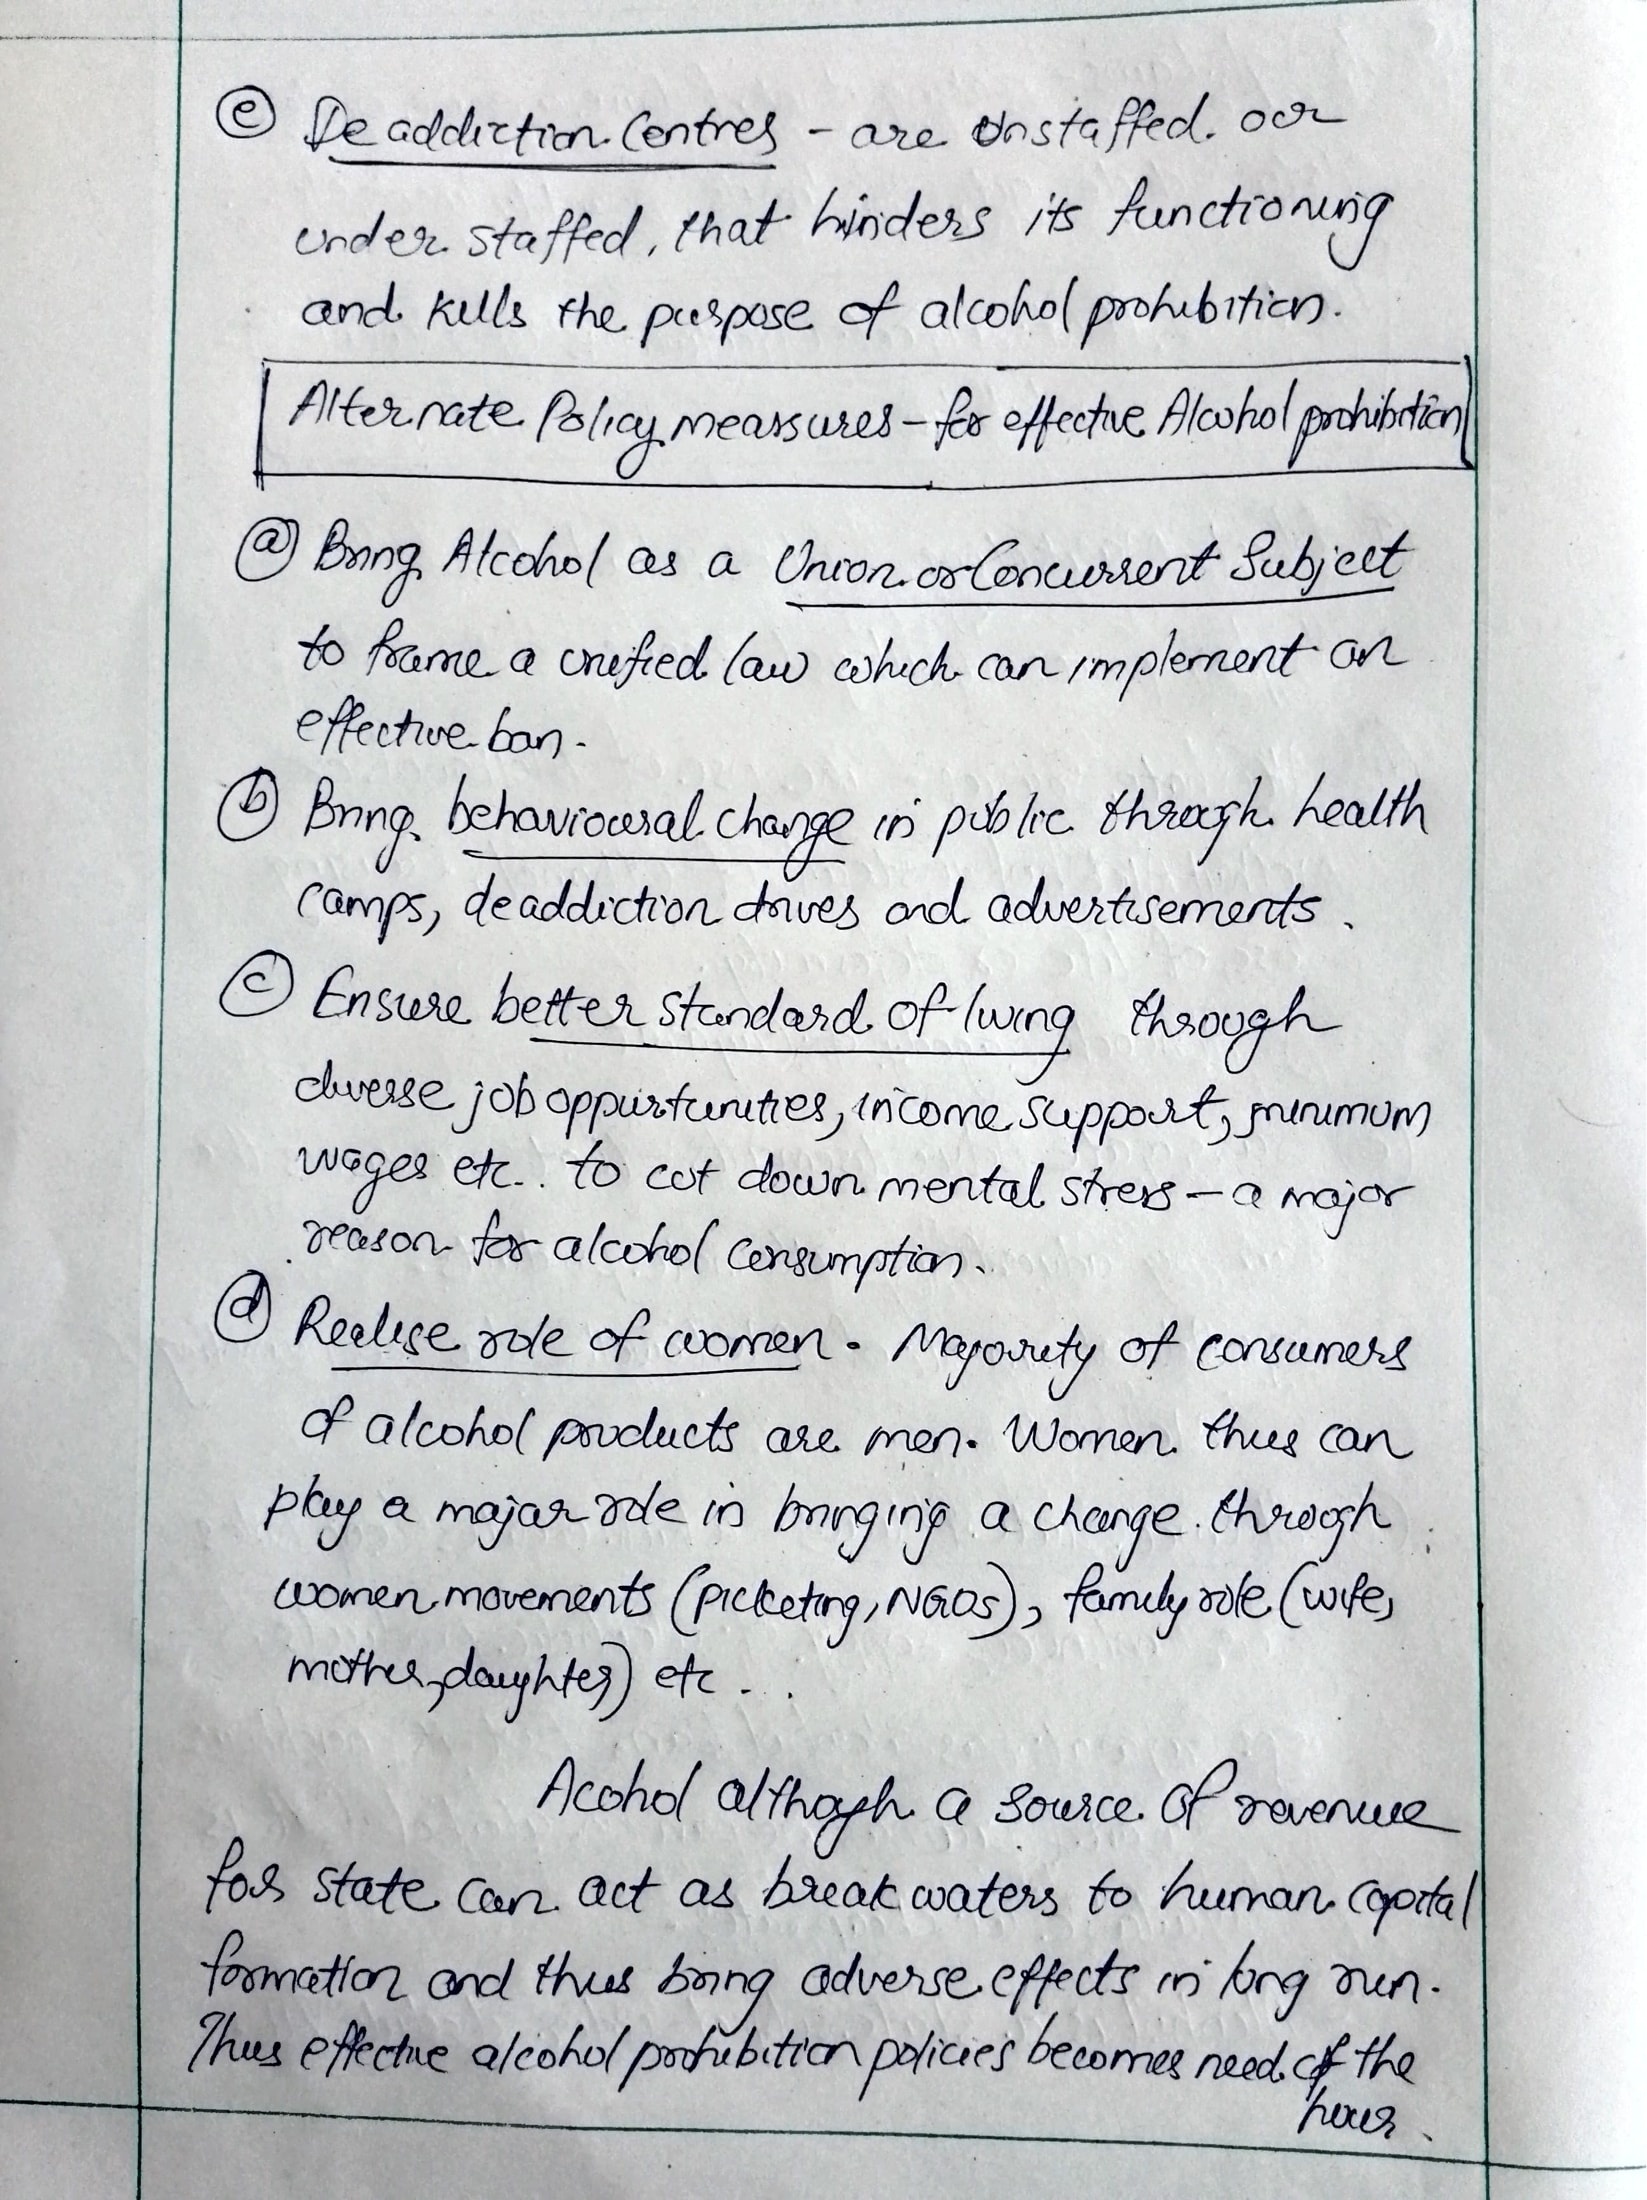 ⓔ De addiction Centres - are Unstaffed or
under staffed, that hinders its functioning
and kills the purpose of alcohol prohibition.
Alternate Policy meassures - for effective Alcohol prohibition
ⓐ Bring Alcohol as a Union or Concurrent Subject
to frame a unified law which can implement an
effective ban.
ⓑ Bring behavioural change in public through health
camps, deaddiction drives and advertisements.
ⓒ Ensure better standard of living through
diverse job oppurtunities, income support, minimum
wages etc.. to cut down mental stress - a major
reason for alcohol consumption.
ⓓ Realise role of women. Majority of consumers
of alcohol products are men. Women thus can
play a major role in bringing a change through
women movements (picketing, NGOs), family role (wife,
mother, daughter) etc...
Acohol although a source of revenue
for state can act as break waters to human capital
formation and thus bring adverse effects in long run.
Thus effective alcohol prohibition policies becomes need of the
hour.